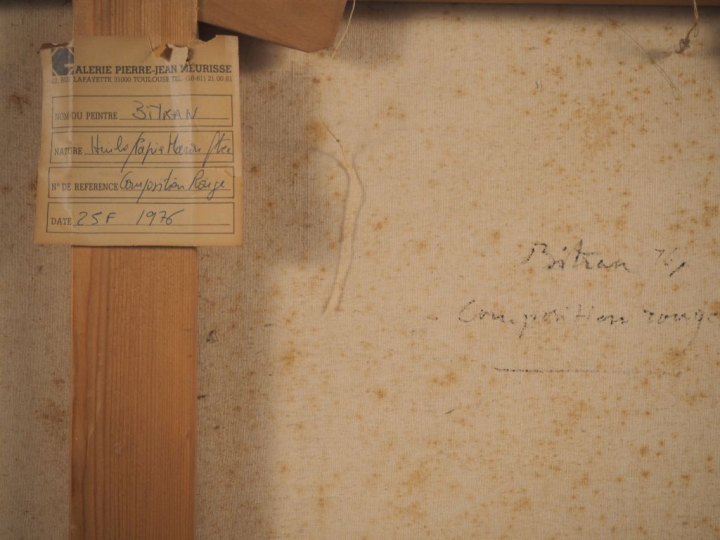 GALERIE PIERRE-JEAN MEURISSE
RUE LAFAYETTE 31000 TOULOUSE TEL. (16-61) 21.00.81
NOM DU PEINTRE BITRAN
NATURE Huile/Papier Marouflée
N° DE REFERENCE Composition Rouge
DATE 25F 1976
Bitran 76
Composition rouge